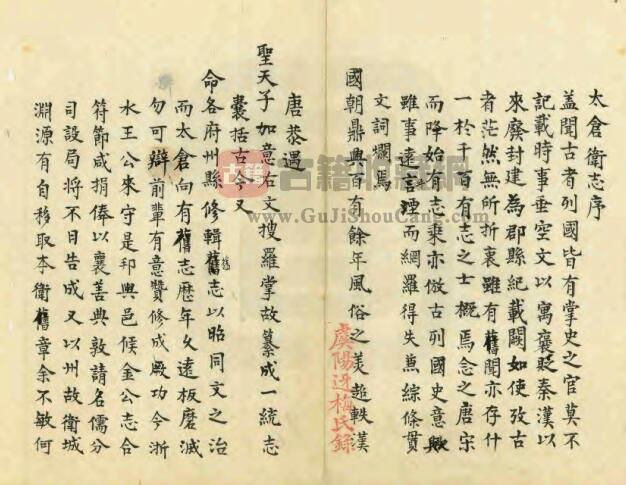 太倉衛志序
蓋聞古者列國皆有掌史之官莫不
記載時事垂空文以寓襃貶秦漢以
來廢封建為郡縣紀載闕如使攷古
者茫然無所折衷雖有舊聞亦存什
一於千百有志之士概焉念之唐宋
而降始有志乘亦倣古列國史意歟
雖事遠言湮而網羅得失兼綜條貫
文詞爛焉
國朝鼎興百有餘年風俗之美超軼漢
虞陽迓梅氏錄
唐恭遇
聖天子加意右文搜羅掌故纂成一統志
囊括古今又
命各府州縣修輯舊志以昭同文之治
舊
而太倉向有舊志歷年久遠板磨滅
勿可辯前輩有意贊修成厥功今浙
水王公來守是邦興邑候金公志合
符節咸捐俸以襄善典敦請名儒分
司設局將不日告成又以州故衛城
淵源有自移取本衛舊章余不敏何
古籍
古籍收藏網
www.GuJiShouCang.com